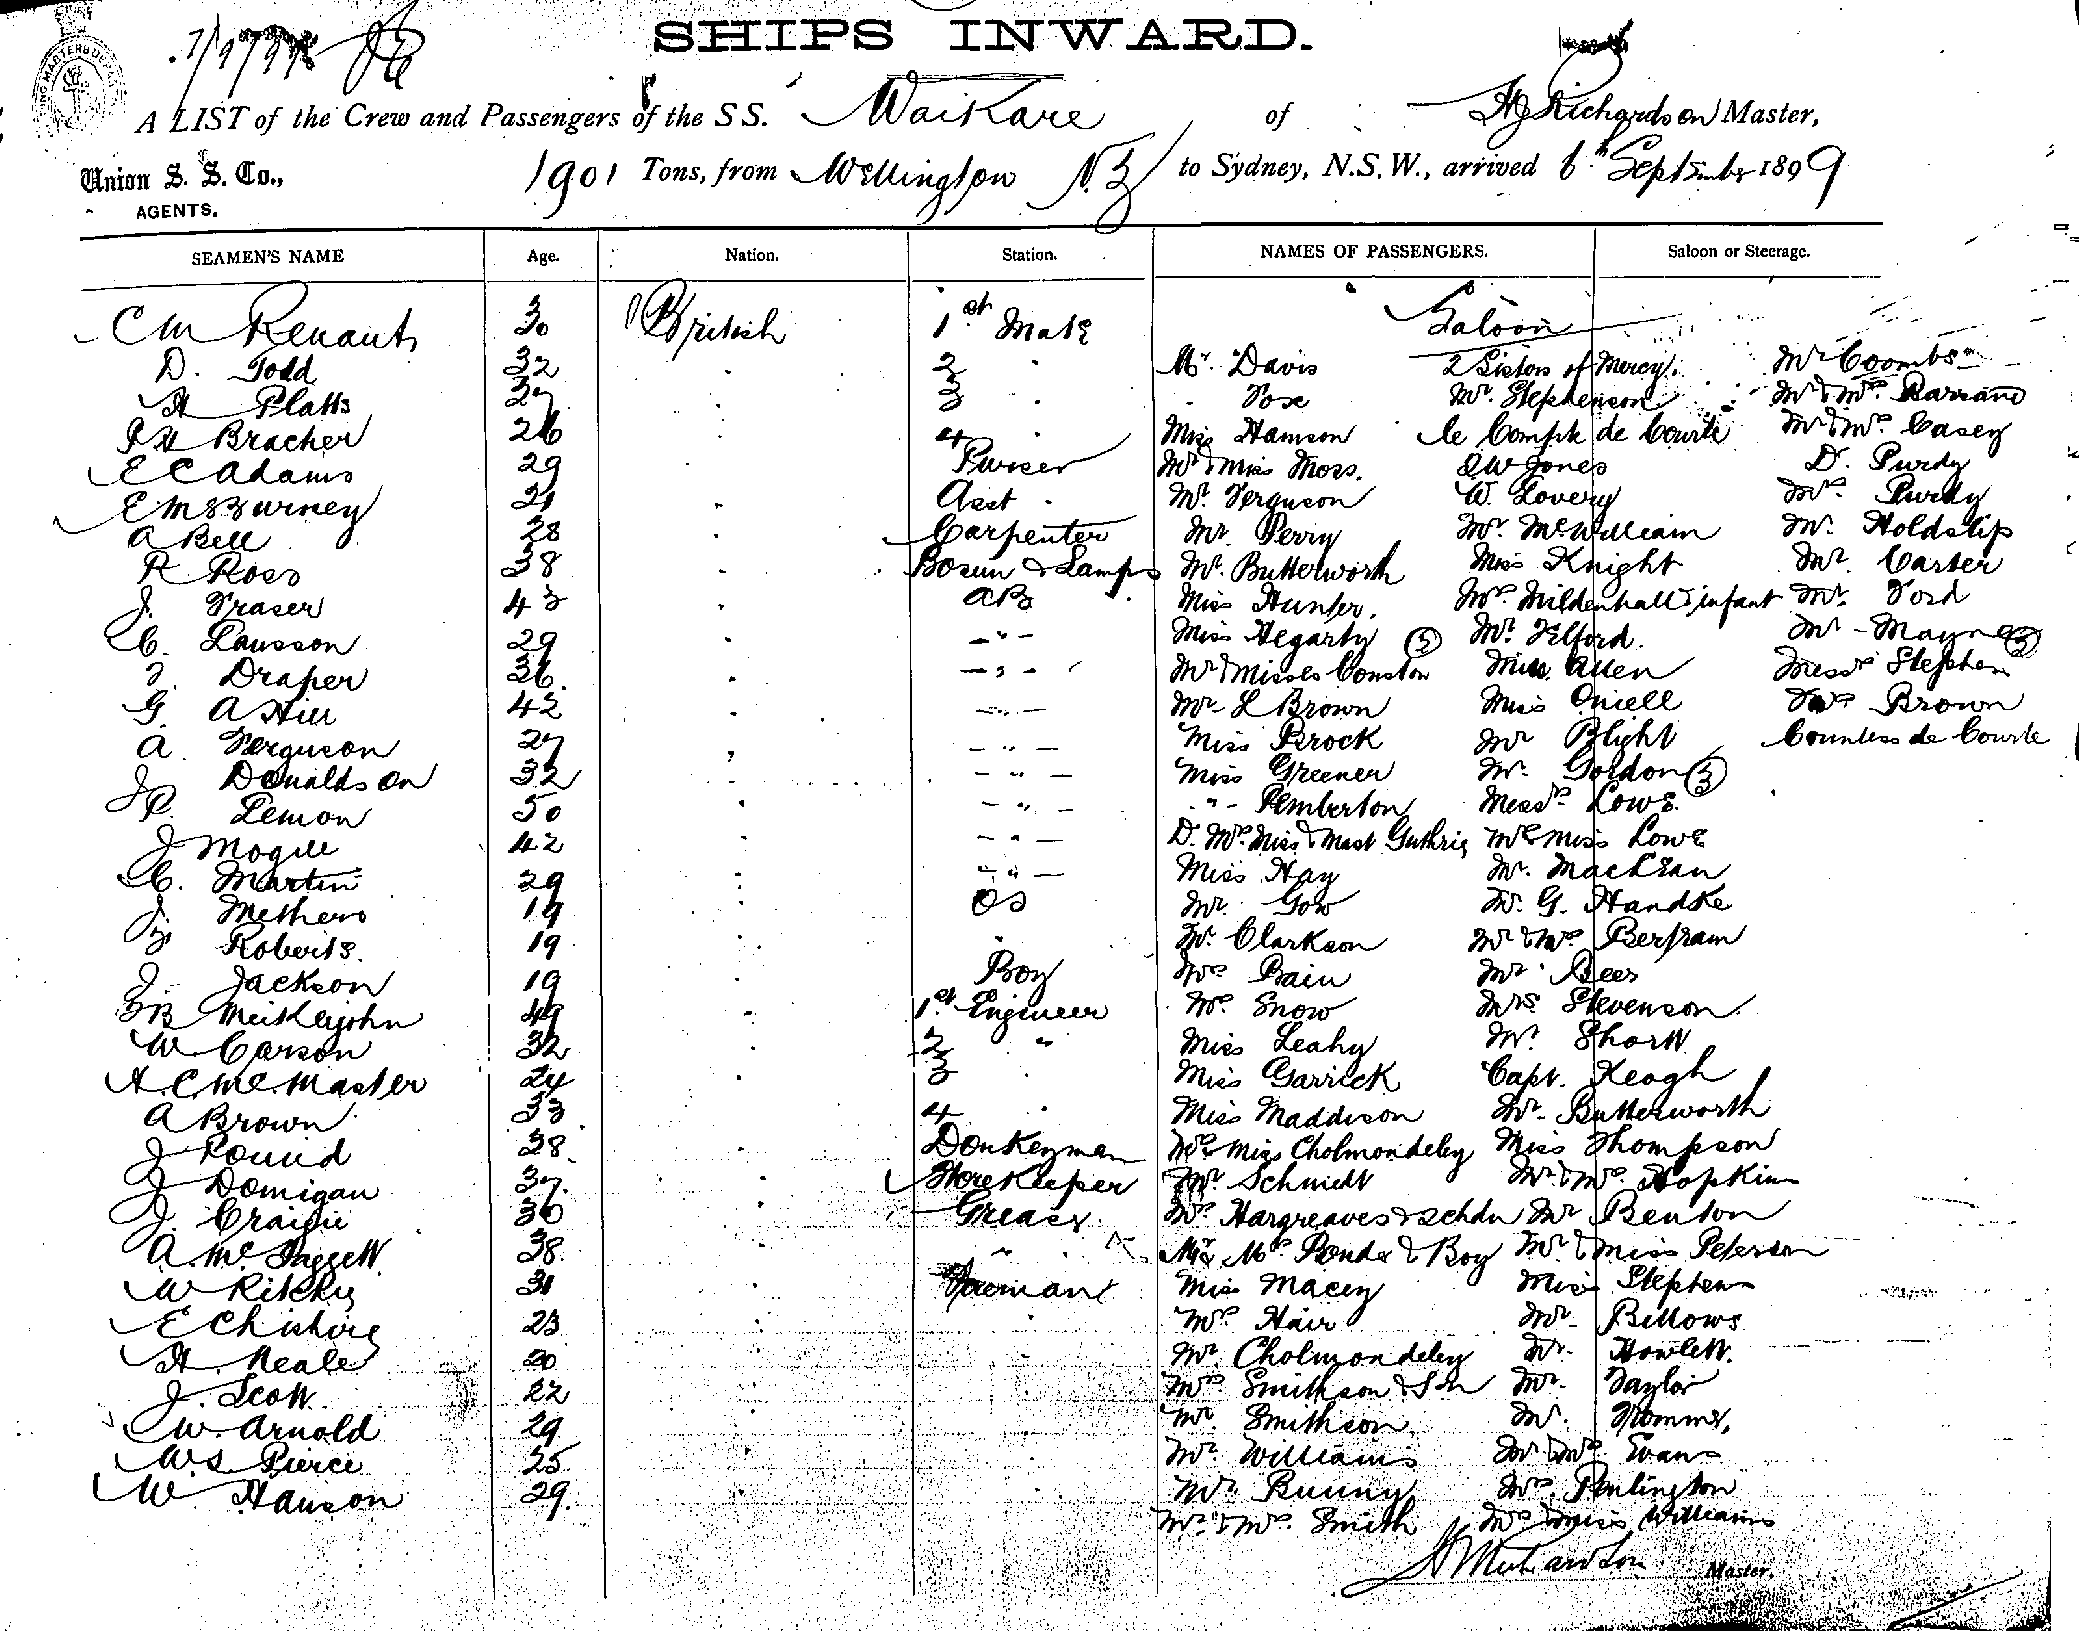 SHIPS INWARD.
A LIST of the Crew and Passengers of the S S. Waikare of Richardson Master,
Union S. S. Co., AGENTS.
1901 Tons, from Wellington N.Z to Sydney, N.S.W., arrived 6th September 1899
SEAMEN'S NAME Age. Nation. Station. NAMES OF PASSENGERS. Saloon or Steerage.
C M Renaut 30 British 1st Mate Saloon
D. Todd 32 2 Mr. Davis 2 Sisters of Mercy. Mr Coombs
H Platts 27 3 Mr. Stephenson Mr & Mrs.
J H Bracher 26 4 Miss Hamson le Compte de Courte Mr & Mrs. Casey
E C Adams 29 Purser Mr & Miss Moss. O W Jones Dr. Purdy
E McBurney 21 Asst Mr. Ferguson W. Lovery Mrs. Purdy
A Bell 28 Carpenter Mr. Perry Mr. McWilliam Mr. Holdslip
R Ross 38 Bosun & Lamps Mr. Butterworth Miss Knight Mr. Carter
J. Fraser 43 AB Miss Hunter. Mrs. Mildenhall & infant Mr. Ford
C. Lausson 29 -"- Miss Hegarty (5) Mr. Telford. Mr - Mayne
Draper 36. -"- Mr & Misses Couston Miss Allen Messrs Stephen (3)
G. A Hill 42 -"- Mr - L Brown Miss Oniell Mrs Brown
A. Ferguson 27 -"- Miss Brock Mr Blight Countess de Courte
J Donaldson 32 -"- Miss Greener Mr. Gordon (3)
R. Lemon 50 -"- -"- Pemberton Messrs Lowe.
J Mogill 42 -"- Dr. Mrs. Miss & Mast Guthrie Mrs Miss Lowe
C. Martin 29 -"- Miss Hay Mr. MacLean
J. Methers 19 OS Mr. Gow Mr. G. Handke
Roberts. 19 Mr. Clarkson Mr & Mrs Bertram
J. Jackson 19 Boy Mrs Bain Mr. Bees
Meiklejohn 49 1st Engineer Mrs. Snow Mrs Stevenson
W Carson 32 2 " Miss Leahy Mr. Short
A. C. McMaster 24 3 Miss Garrick Capt. Keogh
A Brown 33 4 Miss Maddison Mr. Butterworth
J Pound 28. Donkeyman Mrs & Miss Cholmondeley Miss Thompson
J Domigan 37. Storekeeper Mr. Schmidt Mr & Mrs. Hopkins
J. Craigie 30 Greaser Mrs. Hargreaves & 2 chdn Mr Benton
A. McTaggett 38. " Mrs Ponder & Boy Mr & Miss Peterson
W Ritchie 31 Fireman Miss Macey Miss Stephens
E Chishire 23 Mrs. Hair Mr - Billows
H. Neale 20 Mr. Cholmondeley Mr. Howlett.
J. Scott. 22 Mrs. Smithson & Son Mr. Taylor
W. Arnold 29 Mr. Smithson. Mr.
W S Pierce 25 Mr. Williams Mr & Mrs. Evans
W Hanson 29. Mr. Bunny Mrs. Penlington
Mr. & Mrs. Smith Mrs & Miss Williams
Richardson Master.